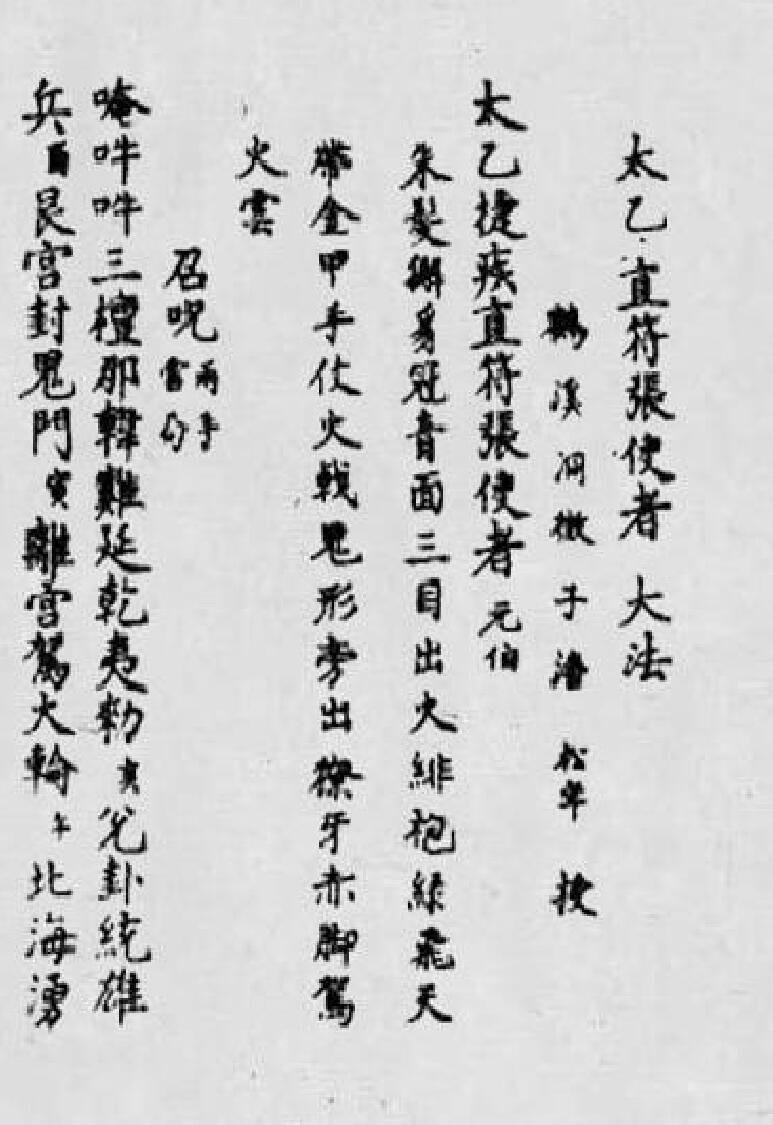 太乙直符張使者 大法
鶴溪洞微子潘 松年 授
太乙捷疾直符張使者 元伯
朱髮獬豸冠青面三目出火緋袍綠飛天
帶金甲手仗火戟鬼形旁出獠牙赤脚駕
火雲
召咒 兩手雷勾
唵吽吽三檀那韓難延乾夷勑 亥 兌卦統雄
兵 酉 艮宮封鬼門 寅 離宮駕火輪 午 北海湧